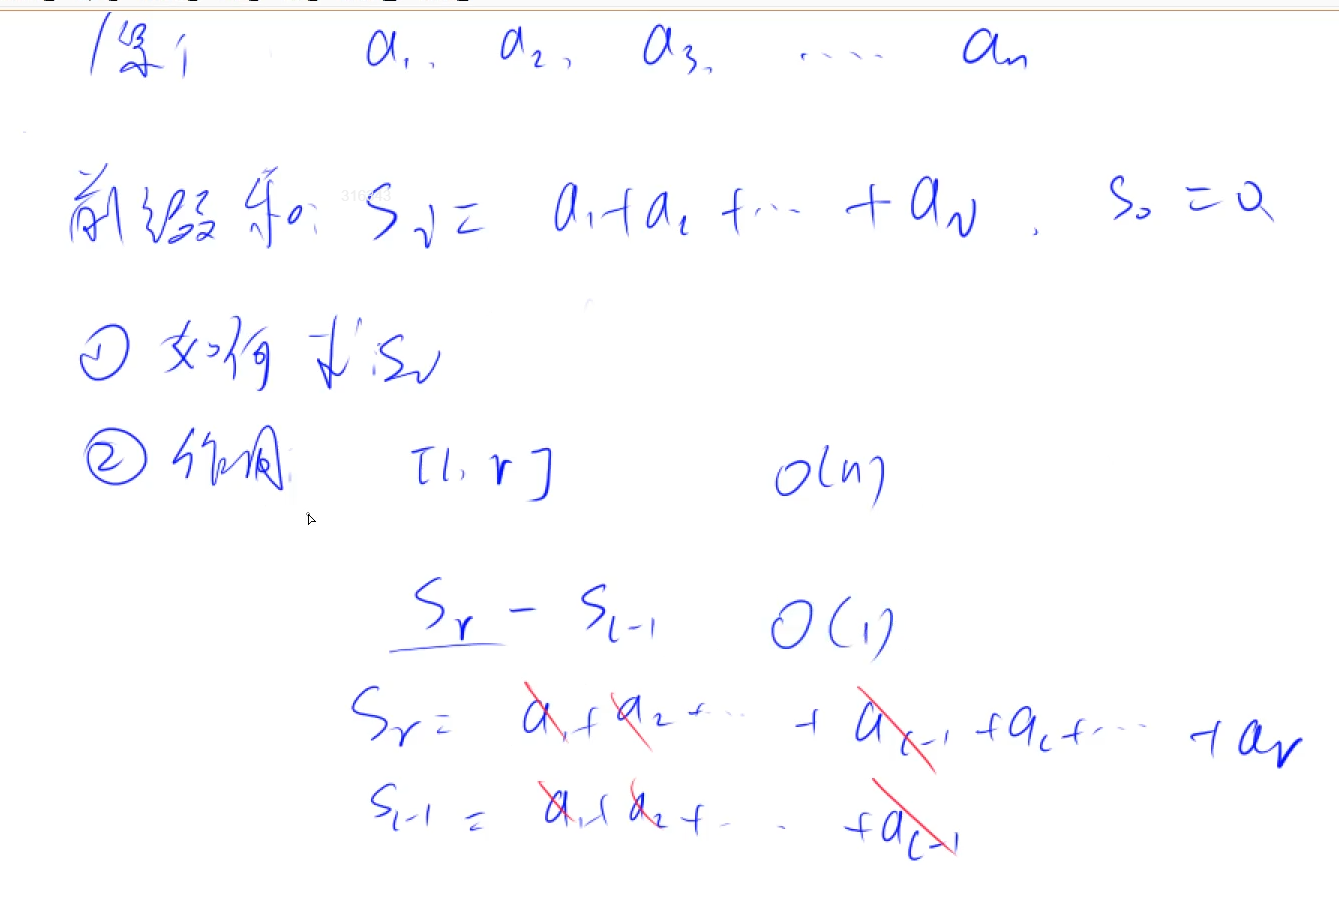 a₁, a₂, a₃, ····· aₙ
前缀和: Sᵢ = a₁+a₂+··· + aᵢ. S₀ = 0
① 如何求Sᵢ
② 作用 [l, r] O(n)
Sᵣ - Sₗ₋₁ O(1)
Sᵣ = a₁+a₂+··· + aₗ₋₁ +aₗ+··· + aᵣ
Sₗ₋₁ = a₁+a₂+··· +aₗ₋₁